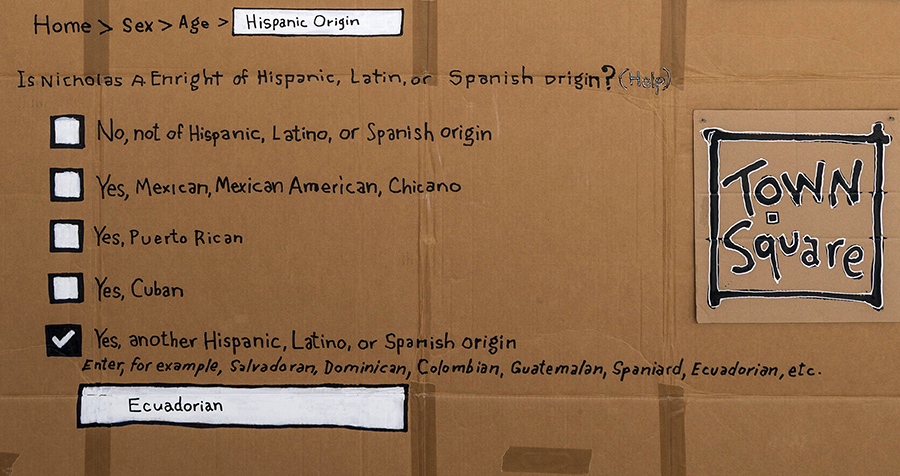 Home > Sex > Age > Hispanic Origin
Is Nicholas A Enright of Hispanic, Latin, or Spanish origin? (Help)
No, not of Hispanic, Latino, or Spanish origin
Yes, Mexican, Mexican American, Chicano
Yes, Puerto Rican
Yes, Cuban
Yes, another Hispanic, Latino, or Spanish origin
Enter, for example, Salvadoran, Dominican, Colombian, Guatemalan, Spaniard, Ecuadorian, etc.
Ecuadorian
TOWN
Square